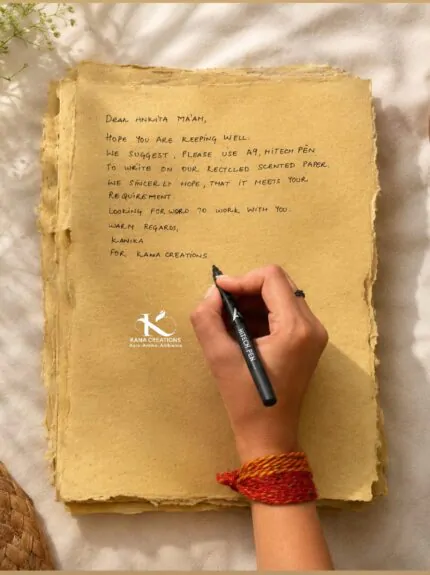 Dear Ankita Ma'am,
Hope you are keeping well.
We suggest, please use A9, Hitech Pen
to write on our recycled scented paper.
We sincerly hope, that it meets your
requirement
Looking forword to work with you.
Warm regards,
Kanika
For Kana Creations
K
KANA CREATIONS
HITECH PEN